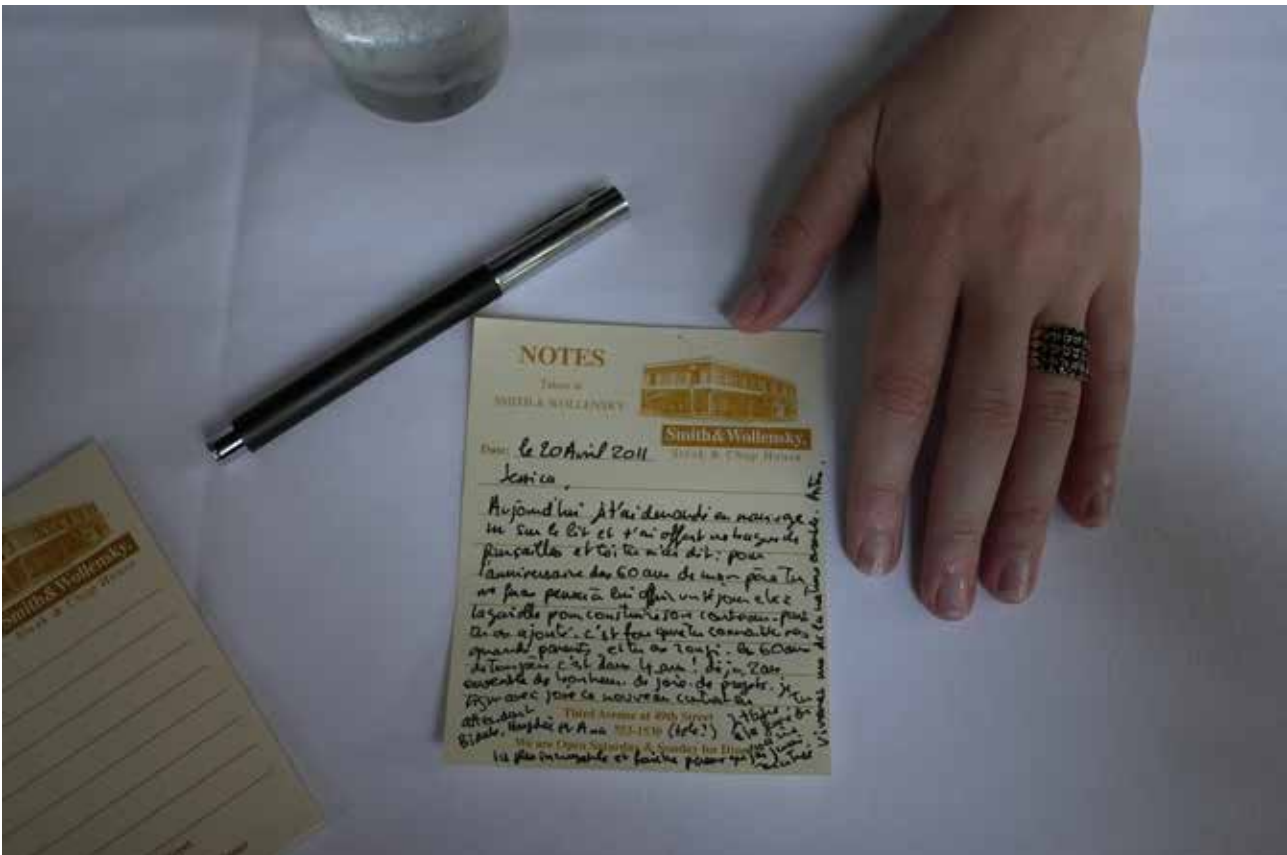 NOTES
Taken at
SMITH & WOLLENSKY
Smith & Wollensky.
Steak & Chop House
Date: le 20 Avril 2011
Jessica,
Aujourd'hui je t'ai demandé en mariage
sur le lit et t'ai offert une bague de
fiançailles et toi tu m'as dit : pour
l'anniversaire des 60 ans de mon père tu
me feras penser à lui offrir un séjour chez
Laguiole pour construire son couteau. puis
tu as ajouté. c'est fou que tu connaisses mes
grands parents, et tu as rougi. les 60 ans
de ton père c'est dans 4 ans ! déjà 2 ans
ensemble de bonheur. de joie. de projets. je
signe avec joie ce nouveau
attendant
Third Avenue at 49th Street
et Ana 753-1530
We are Open Saturday & Sunday for
la plus incroyable et
Smith & Wollensky.
Steak & Chop House